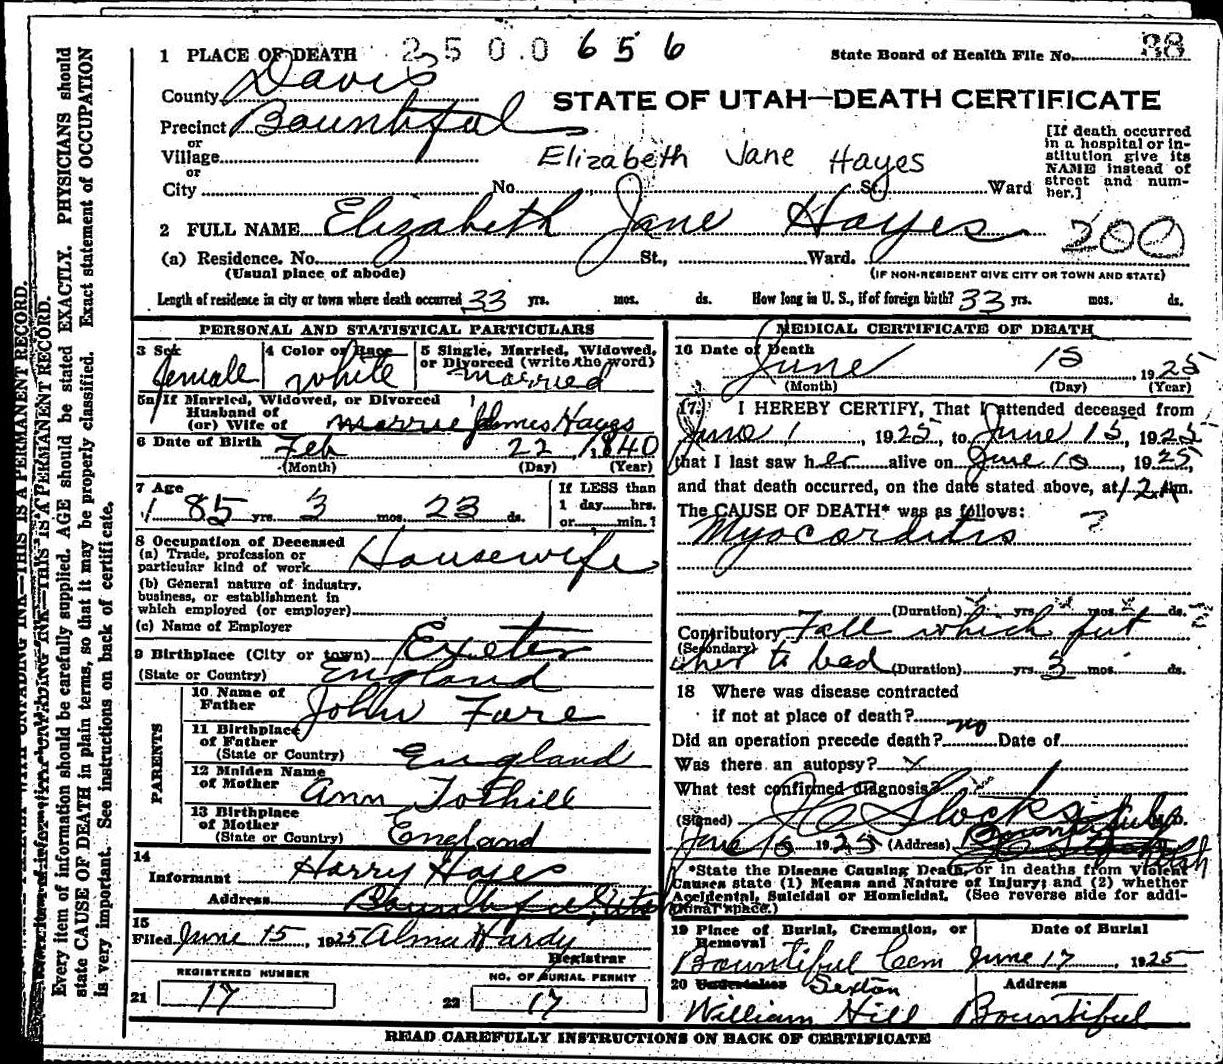 1 PLACE OF DEATH 2500656 State Board of Health File No. 38
County Davis
STATE OF UTAH—DEATH CERTIFICATE
Precinct Bountiful
or
Village
or
City No. St. Ward
Elizabeth Jane Hayes
[If death occurred
in a hospital or in-
stitution give its
NAME instead of
street and num-
ber.]
2 FULL NAME Elizabeth Jane Hayes
200
(a) Residence. No. St., Ward.
(Usual place of abode) (IF NON-RESIDENT GIVE CITY OR TOWN AND STATE)
Length of residence in city or town where death occurred 33 yrs. mos. ds. How long in U. S., if of foreign birth? 33 yrs. mos. ds.
PERSONAL AND STATISTICAL PARTICULARS
3 Sex female
4 Color or Race White
5 Single, Married, Widowed,
or Divorced (write the word)
Married
5a If Married, Widowed, or Divorced
Husband of
(or) Wife of James Hayes
6 Date of Birth Feb 22 1840
(Month) (Day) (Year)
7 Age 85 yrs. 3 mos. 23 ds.
If LESS than
1 day hrs.
or min.?
8 Occupation of Deceased
(a) Trade, profession or
particular kind of work Housewife
(b) General nature of industry,
business, or establishment in
which employed (or employer)
(c) Name of Employer
9 Birthplace (City or town) Exeter
(State or Country) England
PARENTS
10 Name of
Father John Fare
11 Birthplace
of Father
(State or Country) England
12 Maiden Name
of Mother Ann Tothill
13 Birthplace
of Mother
(State or Country) England
14
Informant Harry Hayes
Address Bountiful, Utah
15
Filed June 15, 1925 Alma Hardy
Registrar
REGISTERED NUMBER
21 17
NO. OF BURIAL PERMIT
22 17
MEDICAL CERTIFICATE OF DEATH
16 Date of Death
June 15 1925
(Month) (Day) (Year)
17 I HEREBY CERTIFY, That I attended deceased from
June 1, 1925, to June 15, 1925
that I last saw her alive on June 10, 1925,
and that death occurred, on the date stated above, at 12 m.
The CAUSE OF DEATH* was as follows:
Myocarditis ?
(Duration) yrs. mos. ds.
Contributory Fall which put
(Secondary)
her to bed (Duration) yrs. 3 mos. ds.
18 Where was disease contracted
if not at place of death?
Did an operation precede death? no Date of
Was there an autopsy? x
What test confirmed diagnosis?
(Signed) M.D.
June 15 1925 (Address) Bountiful Utah
*State the Disease Causing Death, or in deaths from Violent
Causes state (1) Means and Nature of Injury; and (2) whether
Accidental, Suicidal or Homicidal. (See reverse side for addi-
tional space.)
19 Place of Burial, Cremation, or
Removal
Bountiful Cem
Date of Burial
June 17, 1925
20 Undertaker Sexton
William Hill
Address
Bountiful
READ CAREFULLY INSTRUCTIONS ON BACK OF CERTIFICATE
UNFADING INK—THIS IS A PERMANENT RECORD.
Every item of information should be carefully supplied. AGE should be stated EXACTLY. PHYSICIANS should
state CAUSE OF DEATH in plain terms, so that it may be properly classified. Exact statement of OCCUPATION
is very important. See instructions on back of certificate.